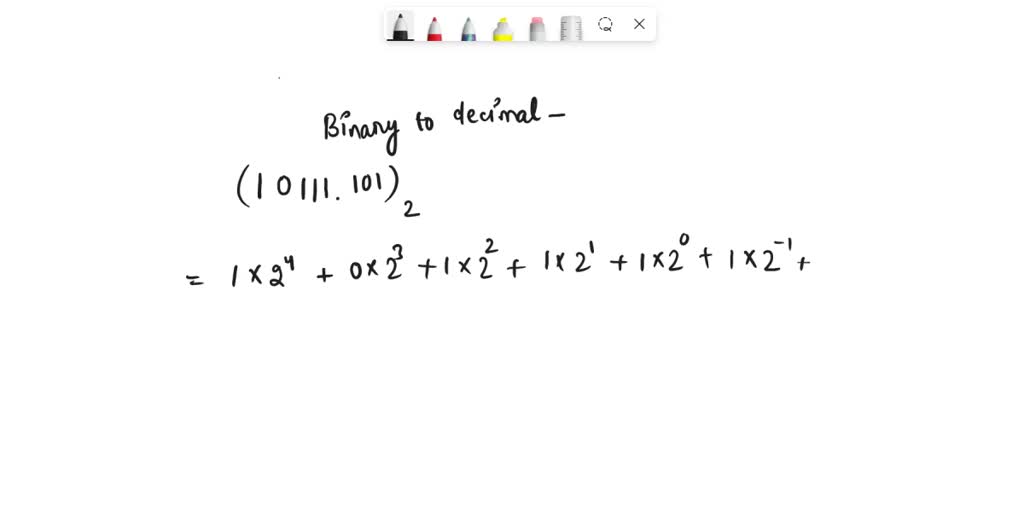 Binary to decimal –
(10111.101)₂
= 1 × 2⁴ + 0 × 2³ + 1 × 2² + 1 × 2¹ + 1 × 2⁰ + 1 × 2⁻¹ +